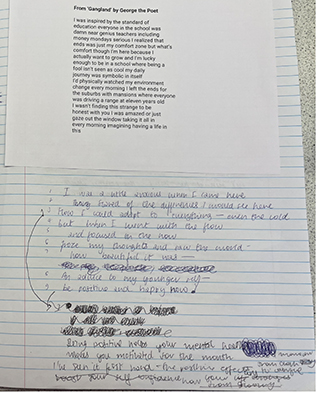 From 'Gangland' by George the Poet
I was inspired by the standard of
education everyone in the school was
damn near genius teachers including
money mondays serious I realized that
ends was just my comfort zone but what's
comfort though I'm here because I
actually want to grow and I'm lucky
enough to be in a school where being a
fool isn't seen as cool my daily
journey was symbolic in itself
I'd physically watched my environment
change every morning I left the ends for
the suburbs with mansions where everyone
was driving a range at eleven years old
I wasn't finding this strange to be
honest with you I was amazed or just
gaze out the window taking it all in
every morning imagining having a life in
this
1 I was a little anxious when I came here
2 of the differences I would see here
3 I could adapt to everything — even the cold
4 but when I went with the flow
5 and focused on the now
6 froze my thoughts and saw the world
7 how beautiful it was —
8 As advice to my younger self —
9 be positive and happy now
Being positive helps your mental health
makes you motivated for the month
I've seen it first hand the positive effect